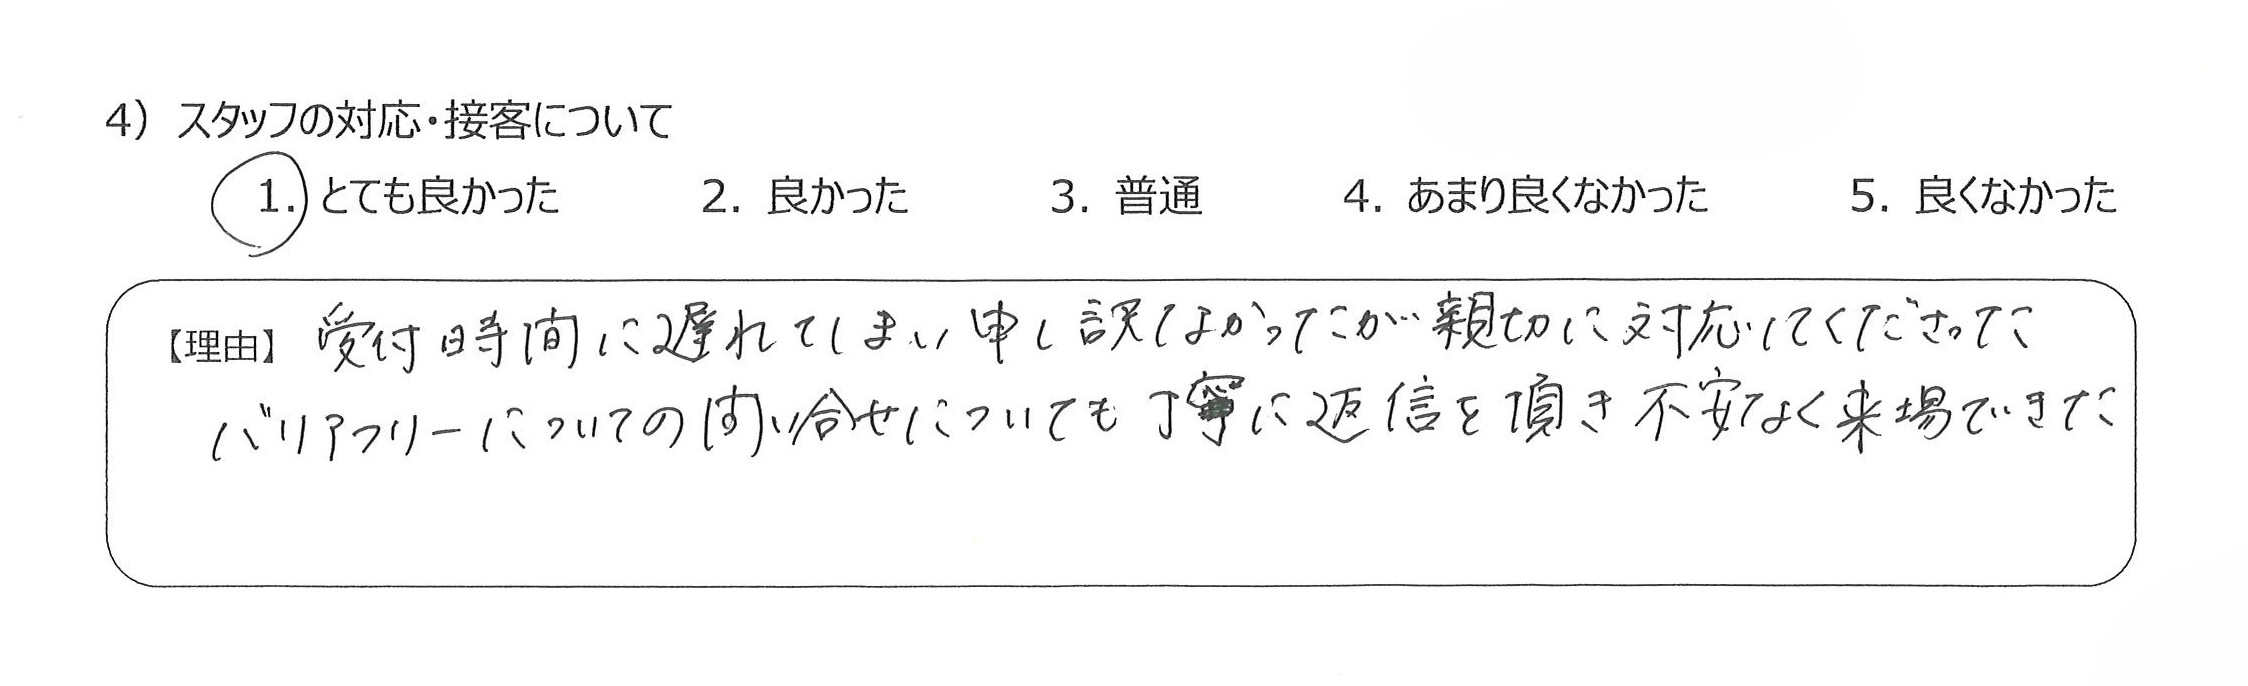 4）スタッフの対応・接客について
1. とても良かった 2. 良かった 3. 普通 4. あまり良くなかった 5. 良くなかった
【理由】受付時間に遅れてしまい申し訳なかったが親切に対応してくださった
バリアフリーについての問い合せについても丁寧に返信を頂き不安なく来場できた